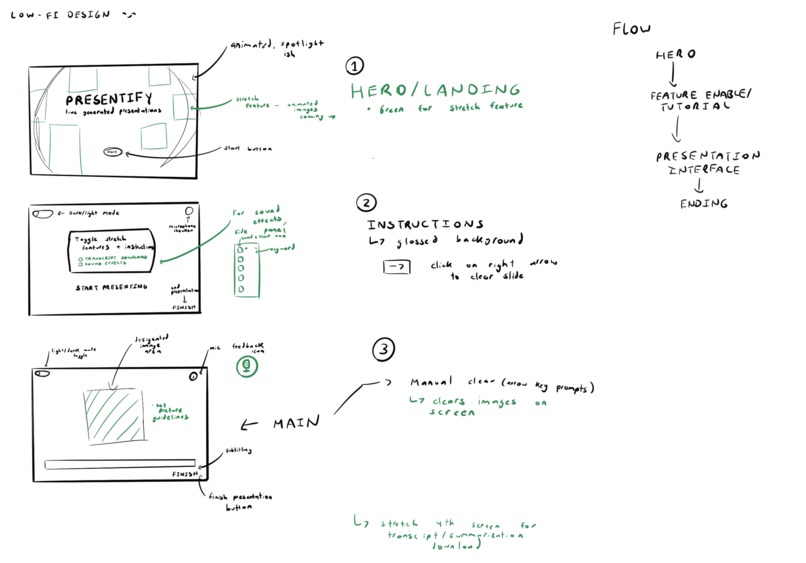 LOW-FI DESIGN
animated, spotlight
ish
PRESENTIFY
live generated presentations
Start
stretch
feature - animated
images
coming up
start button
1
HERO/LANDING
• Green for stretch feature
Flow
HERO
FEATURE ENABLE/
TUTORIAL
PRESENTATION
INTERFACE
ENDING
← Dark/light mode
microphone
checker
Toggle stretch
features + instructions
TRANSCRIPT DOWNLOAD
SOUND EFFECTS
START PRESENTING
end presentation
FINISH
For sound
effects,
side panel,
keyword
2
INSTRUCTIONS
↳ glossed background
→ click on right arrow
to clear slide
light/dark mode
toggle
designated
image
area
mic feedback
icon
- set
picture
guidelines
subtitling
FINISH
finish presentation
button
3
← MAIN
> Manual clear (arrow key prompts)
↳ clears images on
screen
↳ stretch 4th screen for
transcript/summarization
download